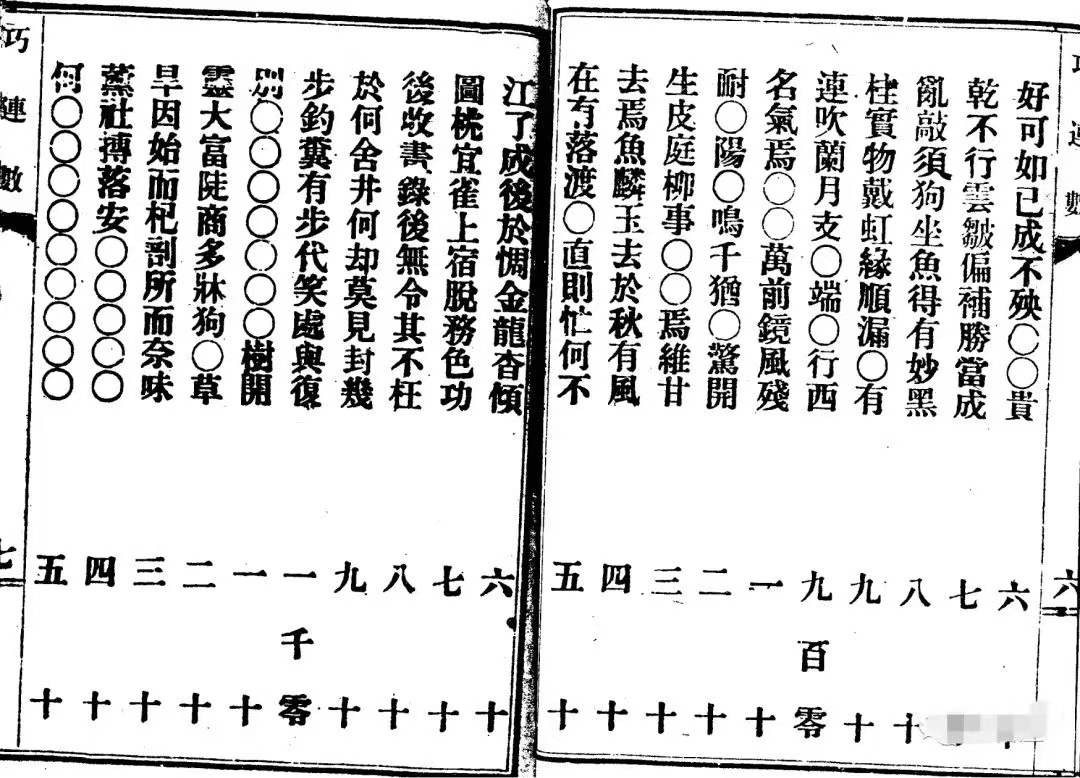 巧連數
好可如已成不殃〇〇貴
六十
乾不行雲皺偏補勝當成
七十
亂敲須狗坐魚得有妙黑
八十
桂實物戴虹緣順漏〇有
九十
連吹蘭月支〇端〇行西
九百零
名氣焉〇〇萬前鏡風殘
一十
耐〇陽〇鳴千猶〇驚開
二十
生皮庭柳事〇〇焉維甘
三十
去焉魚麟玉去於秋有風
四十
在冇落渡〇直則忙何不
五十
六
江了成後於惆金龍杳傾
六十
圖桃宜雀上宿脫務色功
七十
後收書錄後無令其不枉
八十
於何舍井何却莫見封幾
九十
步釣糞有步代笑處與復
一千零
別〇〇〇〇〇〇〇樹開
一十
靈大富陡商多牀狗〇草
二十
早因始而杞剖所而奈味
三十
薰社搏落安〇〇〇〇〇
四十
何〇〇〇〇〇〇〇〇〇
五十
巧連數
七